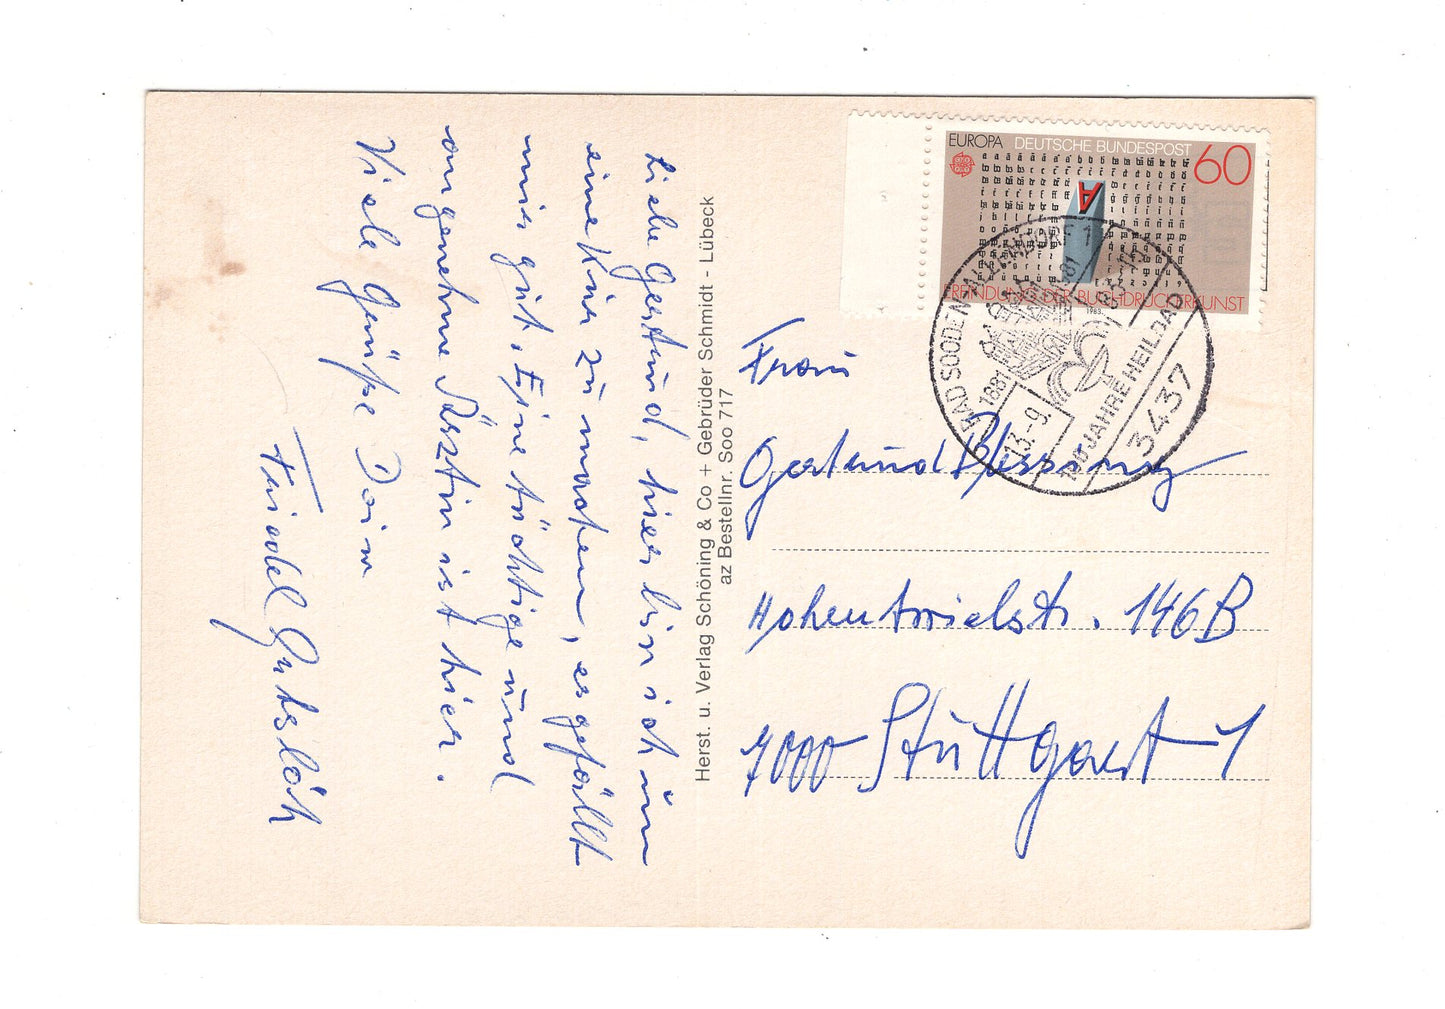 Liebe Gertrud, hier bin ich um
eine Kur zu machen, es gefällt
mir gut. Eine tüchtige und
angenehme Ärztin ist hier.
Viele Grüße Dein
Friedel
Herst. u. Verlag Schöning & Co + Gebrüder Schmidt - Lübeck
az Bestellnr. Soo 717
EUROPA DEUTSCHE BUNDESPOST 60
A
ERFINDUNG DER BUCHDRUCKERKUNST
1983
BAD SOODEN-ALLENDORF 1
1881
13.-9.
100 JAHRE HEILBAD
3437
Frau
Gertrud Blessing
Hohentwielstr. 146B
7000 Stuttgart-1